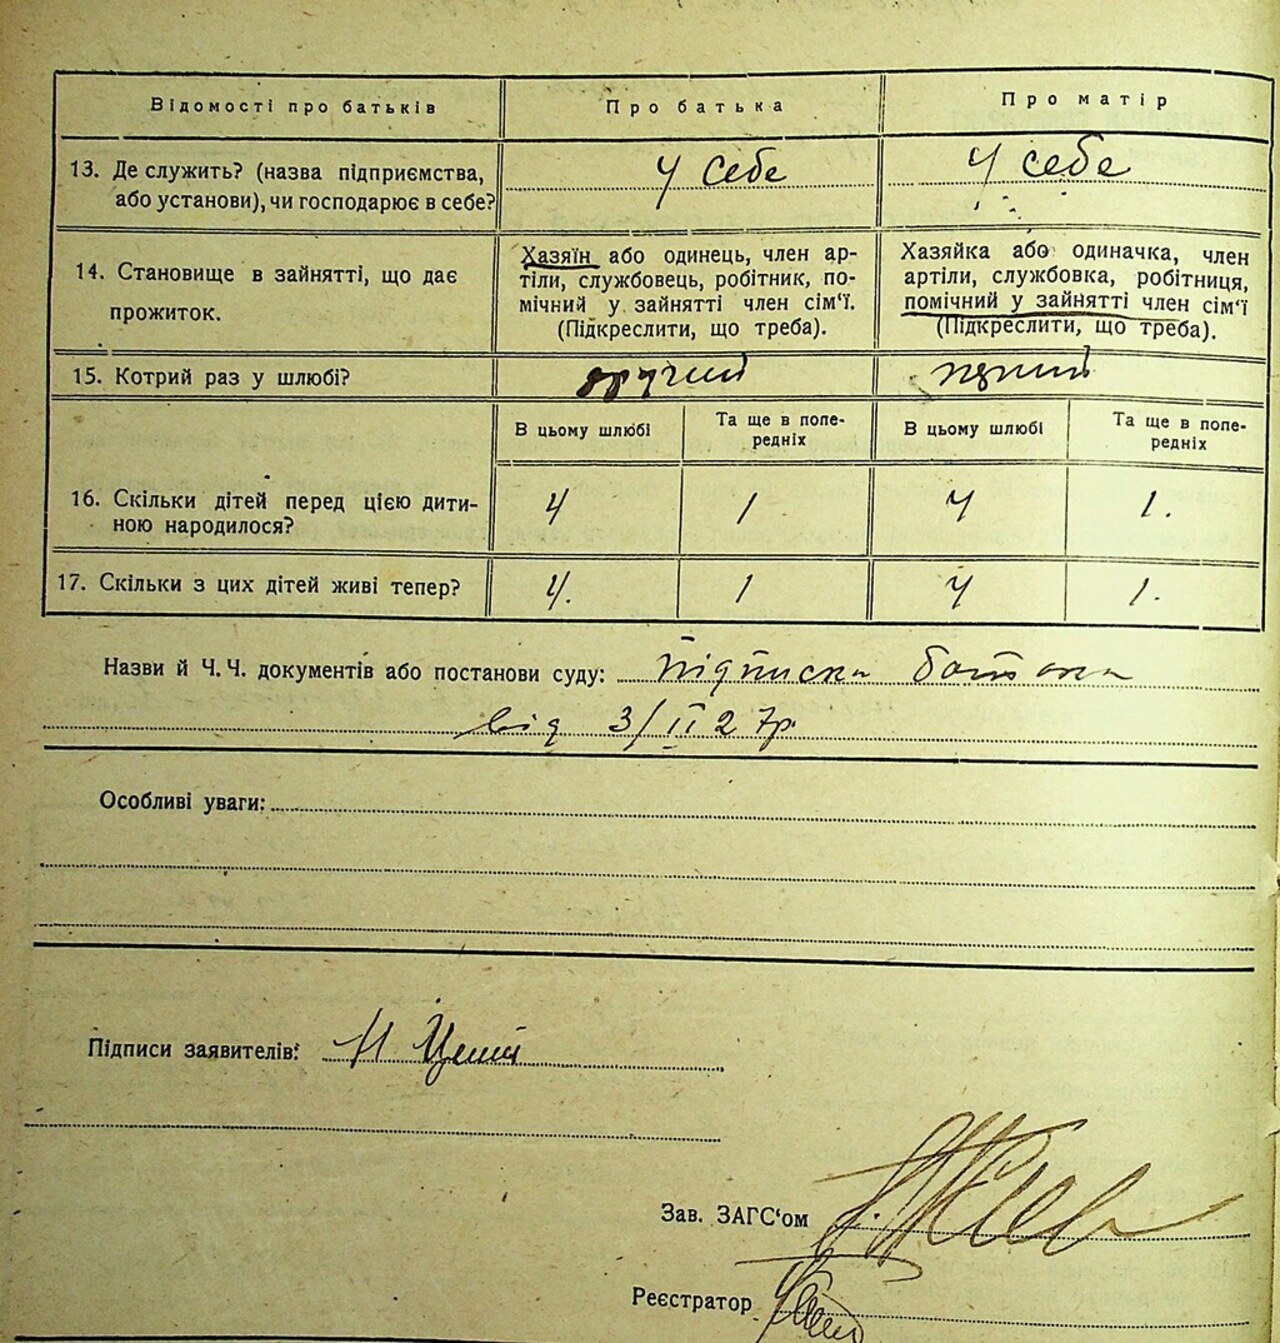 Відомості про батьків Про батька Про матір
13. Де служить? (назва підприємства, У себе У себе
або установи), чи господарює в себе?
14. Становище в зайнятті, що дає
прожиток.
Хазяїн або одинець, член ар-
тіли, службовець, робітник, по-
мічний у зайнятті член сім‘ї.
(Підкреслити, що треба).
Хазяйка або одиначка, член
артіли, службовка, робітниця,
помічний у зайнятті член сім‘ї
(Підкреслити, що треба).
15. Котрий раз у шлюбі? другий перший
В цьому шлюбі
Та ще в попе-
редніх
В цьому шлюбі
Та ще в попе-
редніх
16. Скільки дітей перед цією дити- 4 1 4 1.
ною народилося?
17. Скільки з цих дітей живі тепер? 4. 1 4 1.
Назви й Ч. Ч. документів або постанови суду: підписка батька
від 3/II 27р.
Особливі уваги:
Підписи заявителів:
Зав. ЗАГС‘ом
Реєстратор